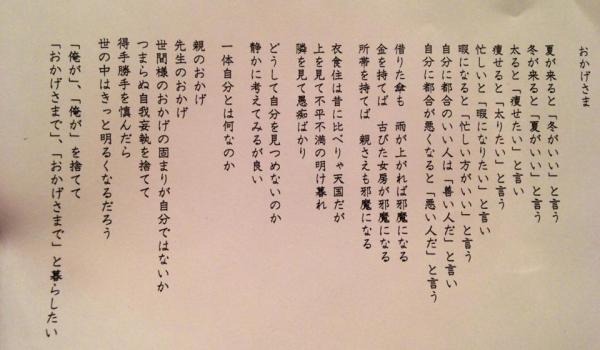 おかげさま
夏が来ると「冬がいい」と言う
冬が来ると「夏がいい」と言う
太ると「痩せたい」と言い
痩せると「太りたい」と言う
忙しいと「暇になりたい」と言い
暇になると「忙しい方がいい」と言う
自分に都合のいい人は「善い人だ」と言い
自分に都合が悪くなると「悪い人だ」と言う
借りた傘も 雨が上がれば邪魔になる
金を持てば 古びた女房が邪魔になる
所帯を持てば 親さえも邪魔になる
衣食住は昔に比べりゃ天国だが
上を見て不平不満の明け暮れ
隣を見て愚痴ばかり
どうして自分を見つめないのか
静かに考えてみるが良い
一体自分とは何なのか
親のおかげ
先生のおかげ
世間様のおかげの固まりが自分ではないか
つまらぬ自我妄執を捨てて
得手勝手を慎んだら
世の中はきっと明るくなるだろう
「俺が」、「俺が」を捨てて
「おかげさまで」、「おかげさまで」と暮らしたい